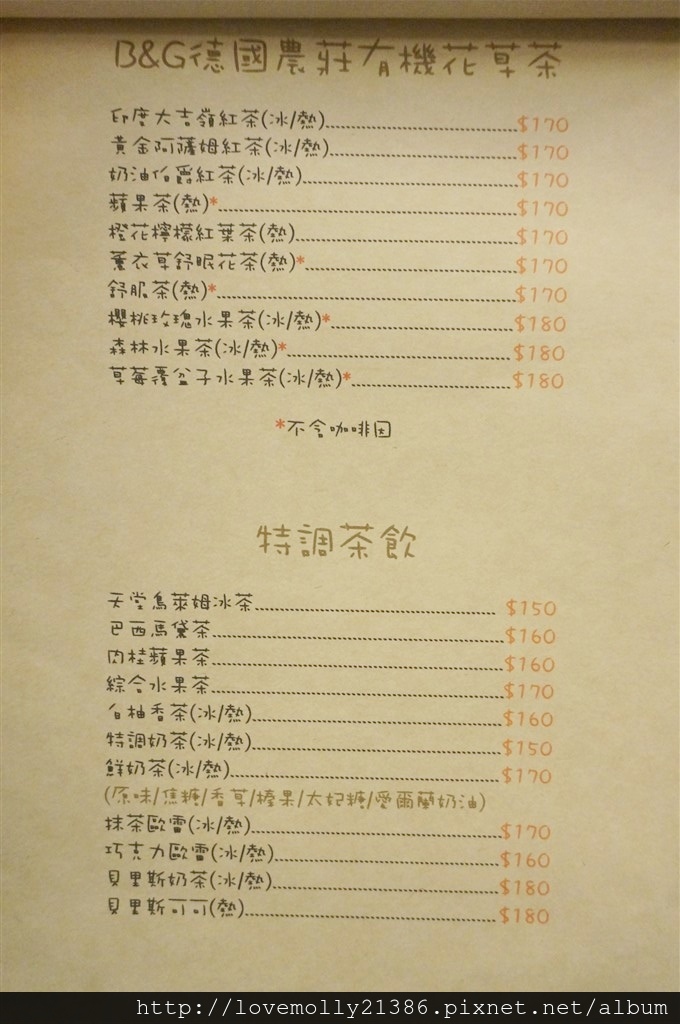 B&G德國農莊有機花草茶
印度大吉嶺紅茶(冰/熱)$170
黃金阿薩姆紅茶(冰/熱)$170
奶油伯爵紅茶(冰/熱)$170
蘋果茶(熱)*$170
橙花檸檬紅葉茶(熱)$170
薰衣草舒眠花茶(熱)*$170
舒服茶(熱)*$170
櫻桃玫瑰水果茶(冰/熱)*$180
森林水果茶(冰/熱)*$180
草莓覆盆子水果茶(冰/熱)*$180
*不含咖啡因
特調茶飲
天堂烏萊姆冰茶$150
巴西馬黛茶$160
肉桂蘋果茶$160
綜合水果茶$170
白柚香茶(冰/熱)$160
特調奶茶(冰/熱)$150
鮮奶茶(冰/熱)$170
(原味/焦糖/香草/榛果/太妃糖/愛爾蘭奶油)
抹茶歐蕾(冰/熱)$170
巧克力歐蕾(冰/熱)$160
貝里斯奶茶(冰/熱)$180
貝里斯可可(熱)$180
http://lovemolly21386.pixnet.net/album